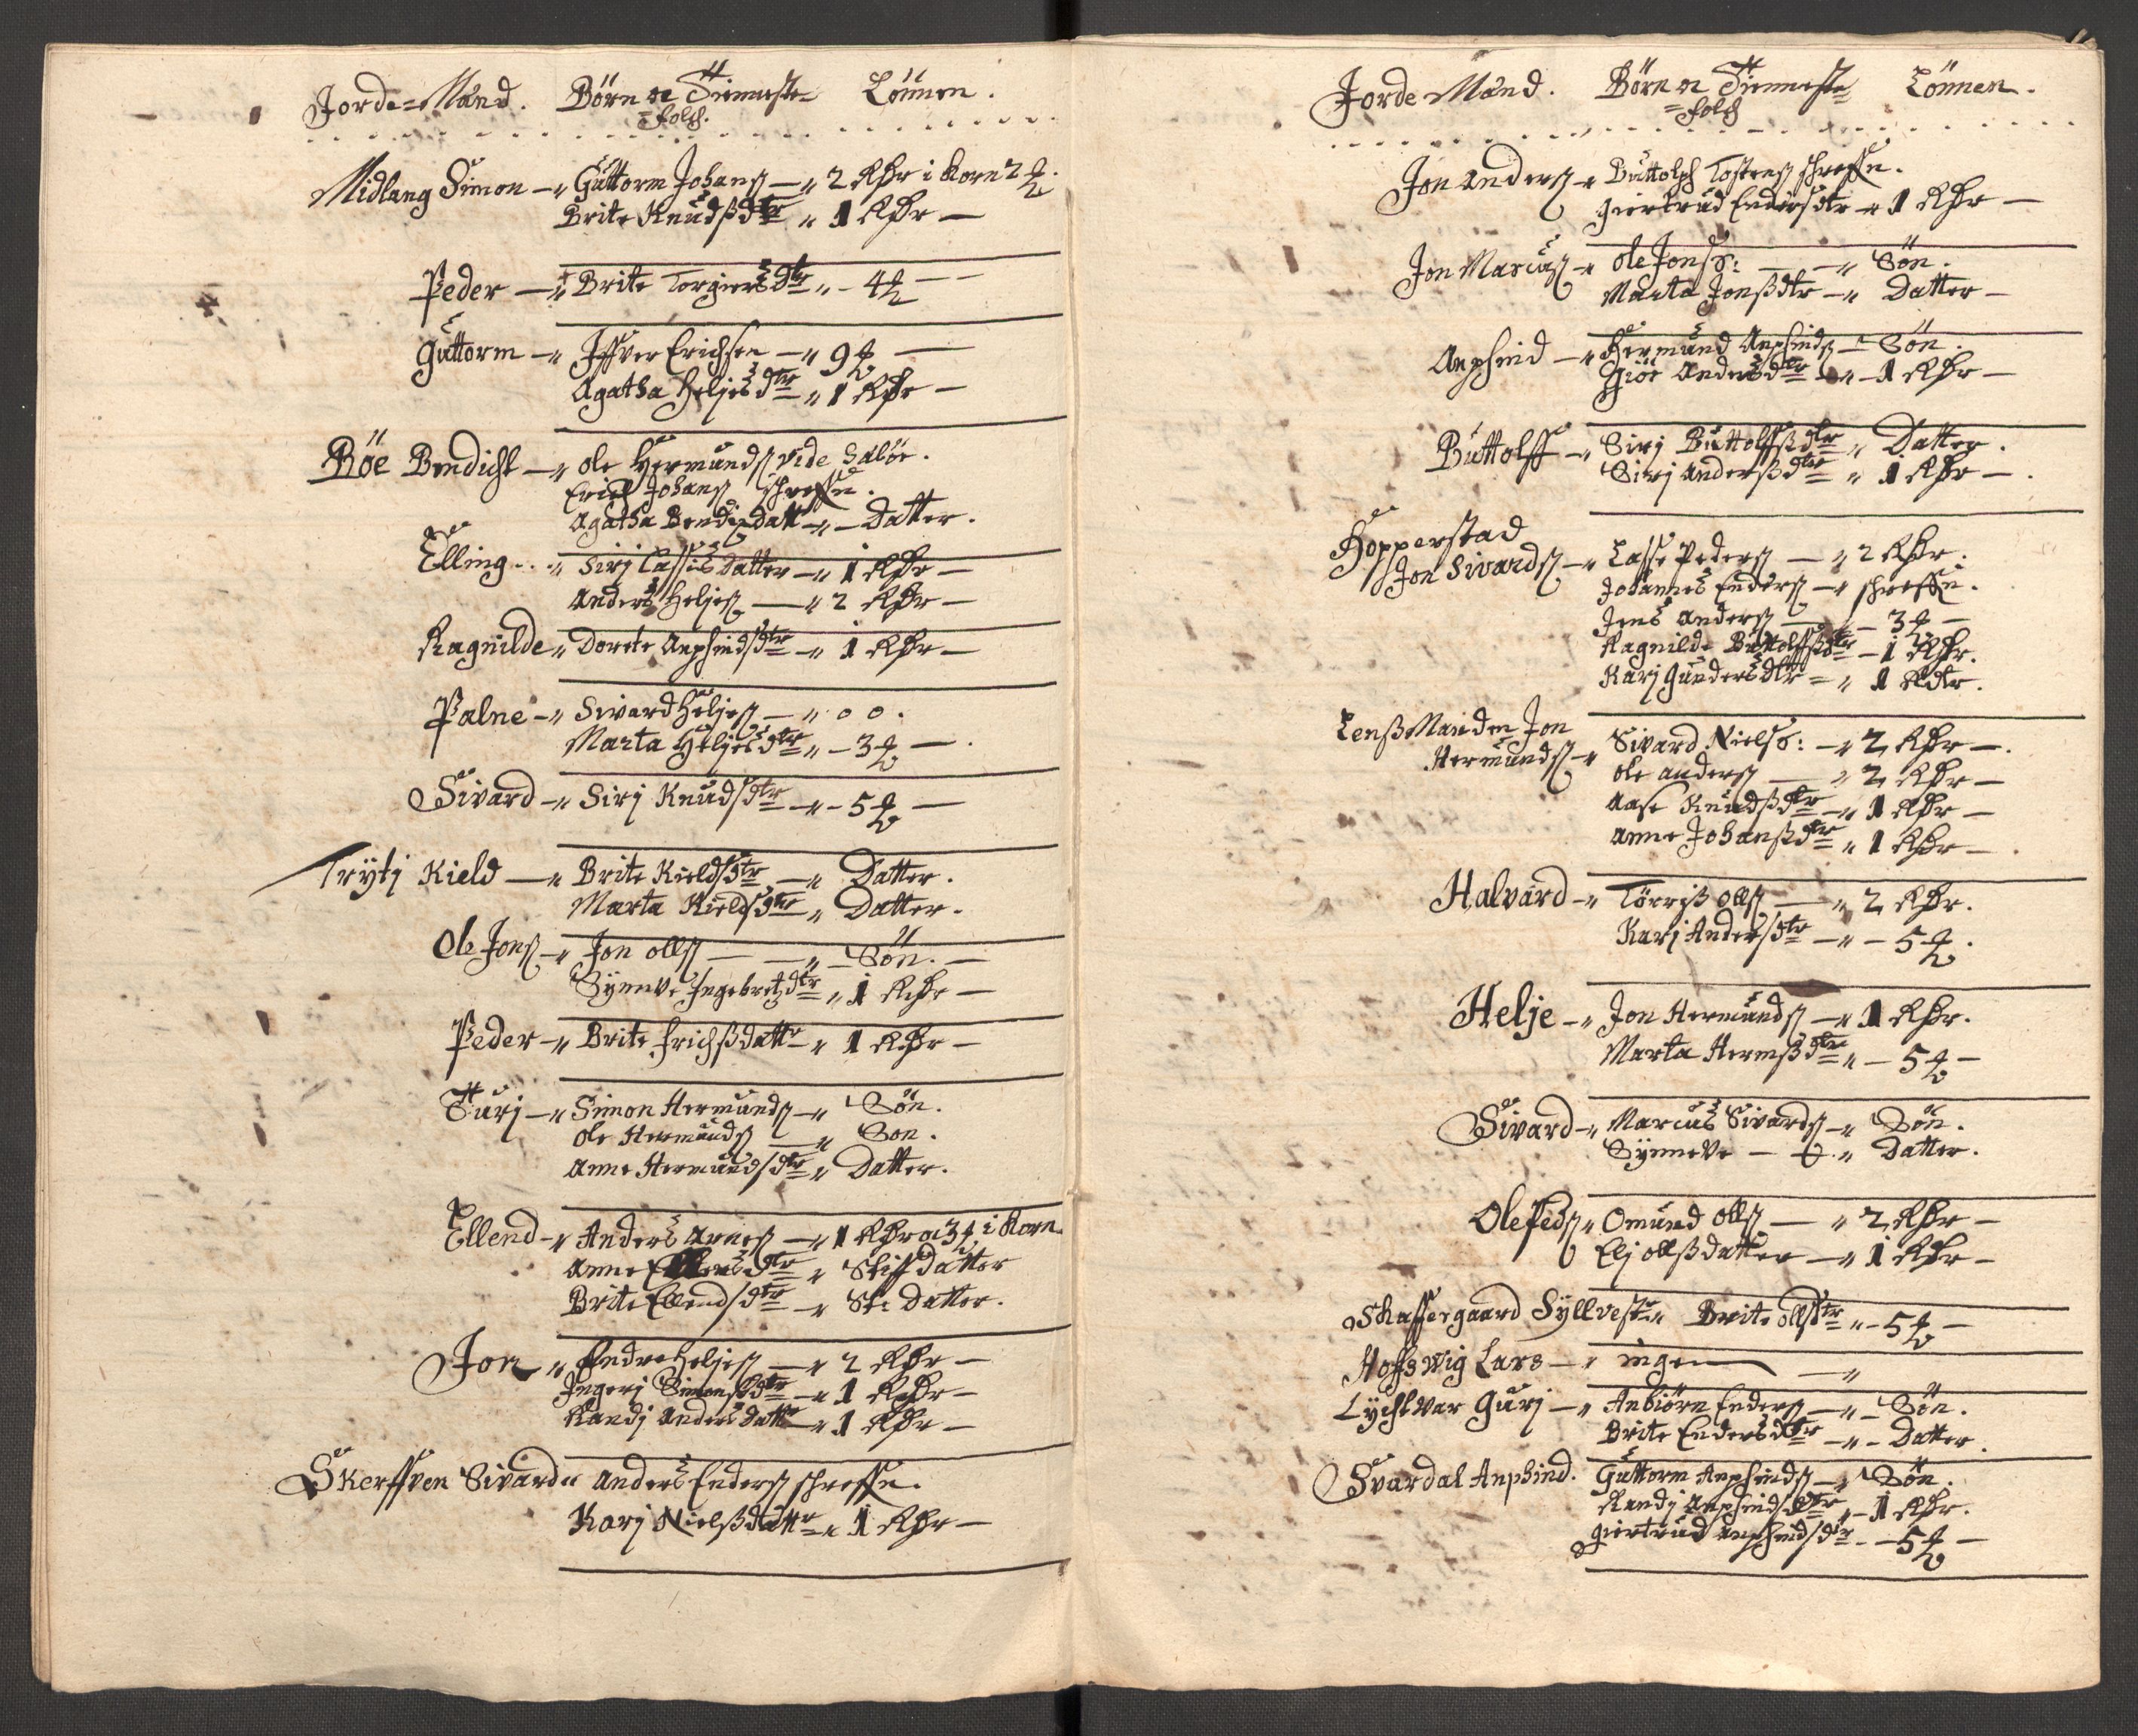 Jorde=Mand. Börn oc Tienneste Lönnen.
=folch.
Midlang Simon — Guttorm Johans — 2 Rdr i Korn 2
Brite Knudsdtr 1 Rdr —
Peder — Brite Torgiersdtr - 4
Guttorm — Iffver Erichsen — 9
Agatha Heljesdtr 1 Rdr —
Böe Bendicht — Ole Hermunds vide Saböe.
Erich Johans
Agatha Bendixdatt — Datter.
Elling Sirj Lassis Datter — 1 Rdr —
Anders Heljes — 2 Rdr —
Ragnilde Dorete Anphindsdtr — 1 Rdr —
Palne — Sivard Heljes — 0 0.
Marta Heljesdtr - 3 —
Sivard — Sirj Knudsdtr — 5 —
Tryti Kield — Brite Kieldsdtr — Datter.
Marta Kieldsdtr Datter.
Ole Jons — Jon Olls — Sön. —
Synneve Ingebretzdtr 1 Rdr —
Peder — Brite Erichsdatter 1 Rdr —
Turj — Simon Hermunds — Sön.
Ole Hermunds — Son.
Anne Hermundsdtr Datter.
Ellend — Anders Arnes — 1 Rdr oc 3 i Korn.
Anne dtr Stiffdatter
Brite Ellendsdtr St: Datter.
Jon Endre Heljes — 2 Rdr —
Ingerj Simensdtr — 1 Rdr —
Randj Anders datter — 1 Rdr —
Skerffven Sivard Anders Enders
Karj Nielsdattr 1 Rdr —
Jorde Mand. Börn oc Tienneste Lönnen.
=folch
Jon Anders — Buttolph Tostens
Giertrud Endersdtr — 1 Rdr —
Jon Marcus — Ole Jons: — Sön.
Marta Jonsdtr — Datter —
Anphind — Hermund Anphinds — Sön.
Giöe Andersdtr — 1 Rdr —
Buttolff — Sirj Buttolffsdtr Datter.
Sirj Andersdtr 1 Rdr —.
Hopperstad
Jon Sivards — Lasse Peders — 2 Rdr.
Johannes Enders —
Jens Anders — 3 —
Ragnilde Buttolffsdtr — 1 Rdr.
Karj Gundersdtr — 1 Rdr.
Lenssmanden Jon
Hermunds — Sivard Niels: — 2 Rdr —.
Ole Anders — 2 Rdr —
Aase Knudsdtr — 1 Rdr —
Anne Johansdtr 1 Rdr —.
Halvard — Törris Olls — 2 Rdr.
Karj Andersdtr — 5.
Helje — Jon Hermunds — 1 Rdr.
Marta Hermsdtr — 5 —
Sivard — Marcus Sivards — Sön.
Synneve — Datter.
Ole Peds Omund Olls — 2 Rdr —
Elj Ollsdatter — 1 Rdr —
Skaffergaard Syllvest Brite Ollsdtr — 5 —
Hoffswig Lars — ingen —
Lychtwar Gurj — Anbiörn Enders — Sön.
Brite Endersdtr — Datter.
Svardal Anphind. Guttorm Anphinds — Sön.
Randj Anphindsdtr — 1 Rdr.
Giertrud Anphindsdtr — 5 —